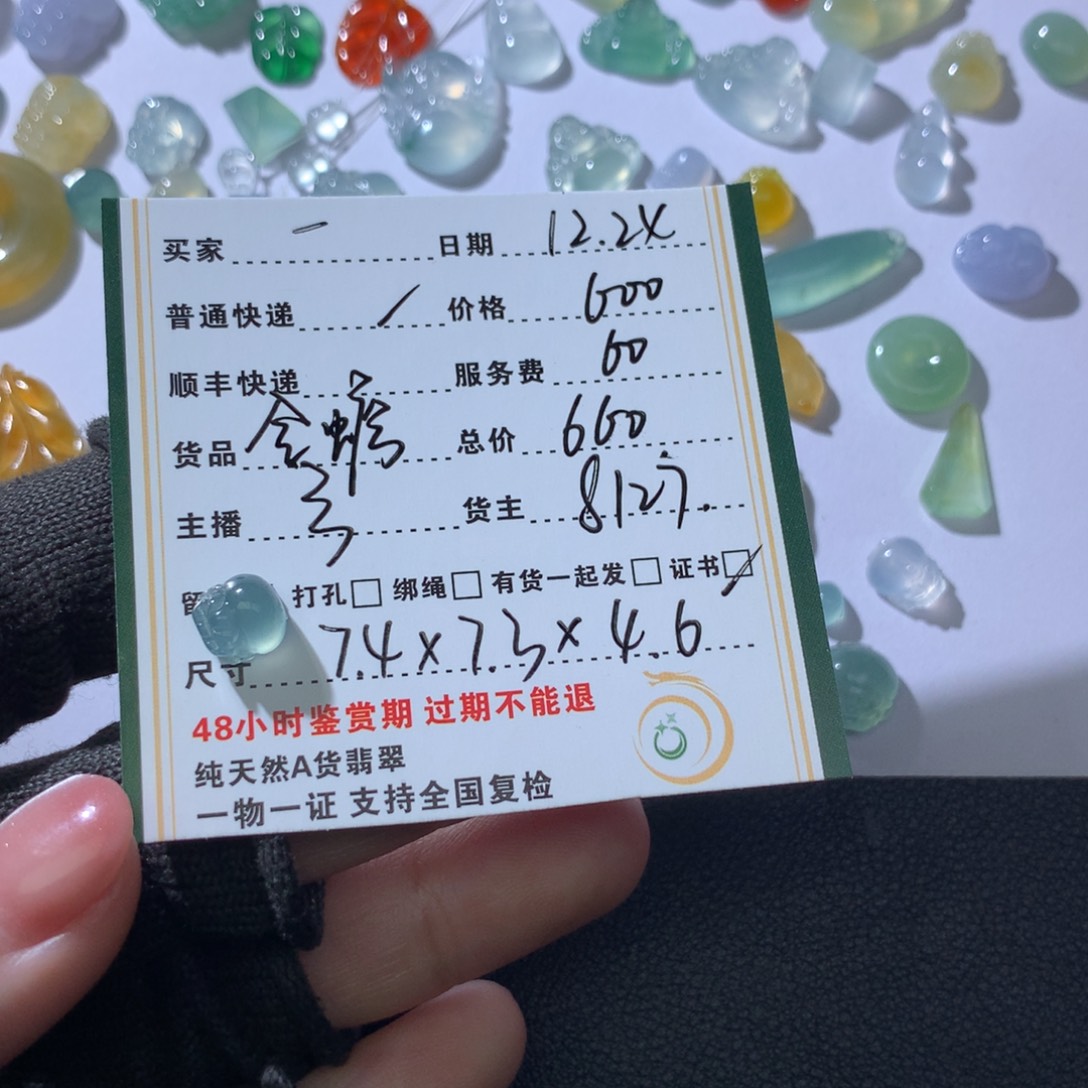 买家 一 日期 12.24
普通快递 / 价格 600
顺丰快递 服务费 60
货品 金蟾 总价 660
主播 货主
打孔□ 绑绳□ 有货一起发□ 证书☑
尺寸 7.4×7.3×4.6
48小时鉴赏期 过期不能退
纯天然A货翡翠
一物一证 支持全国复检